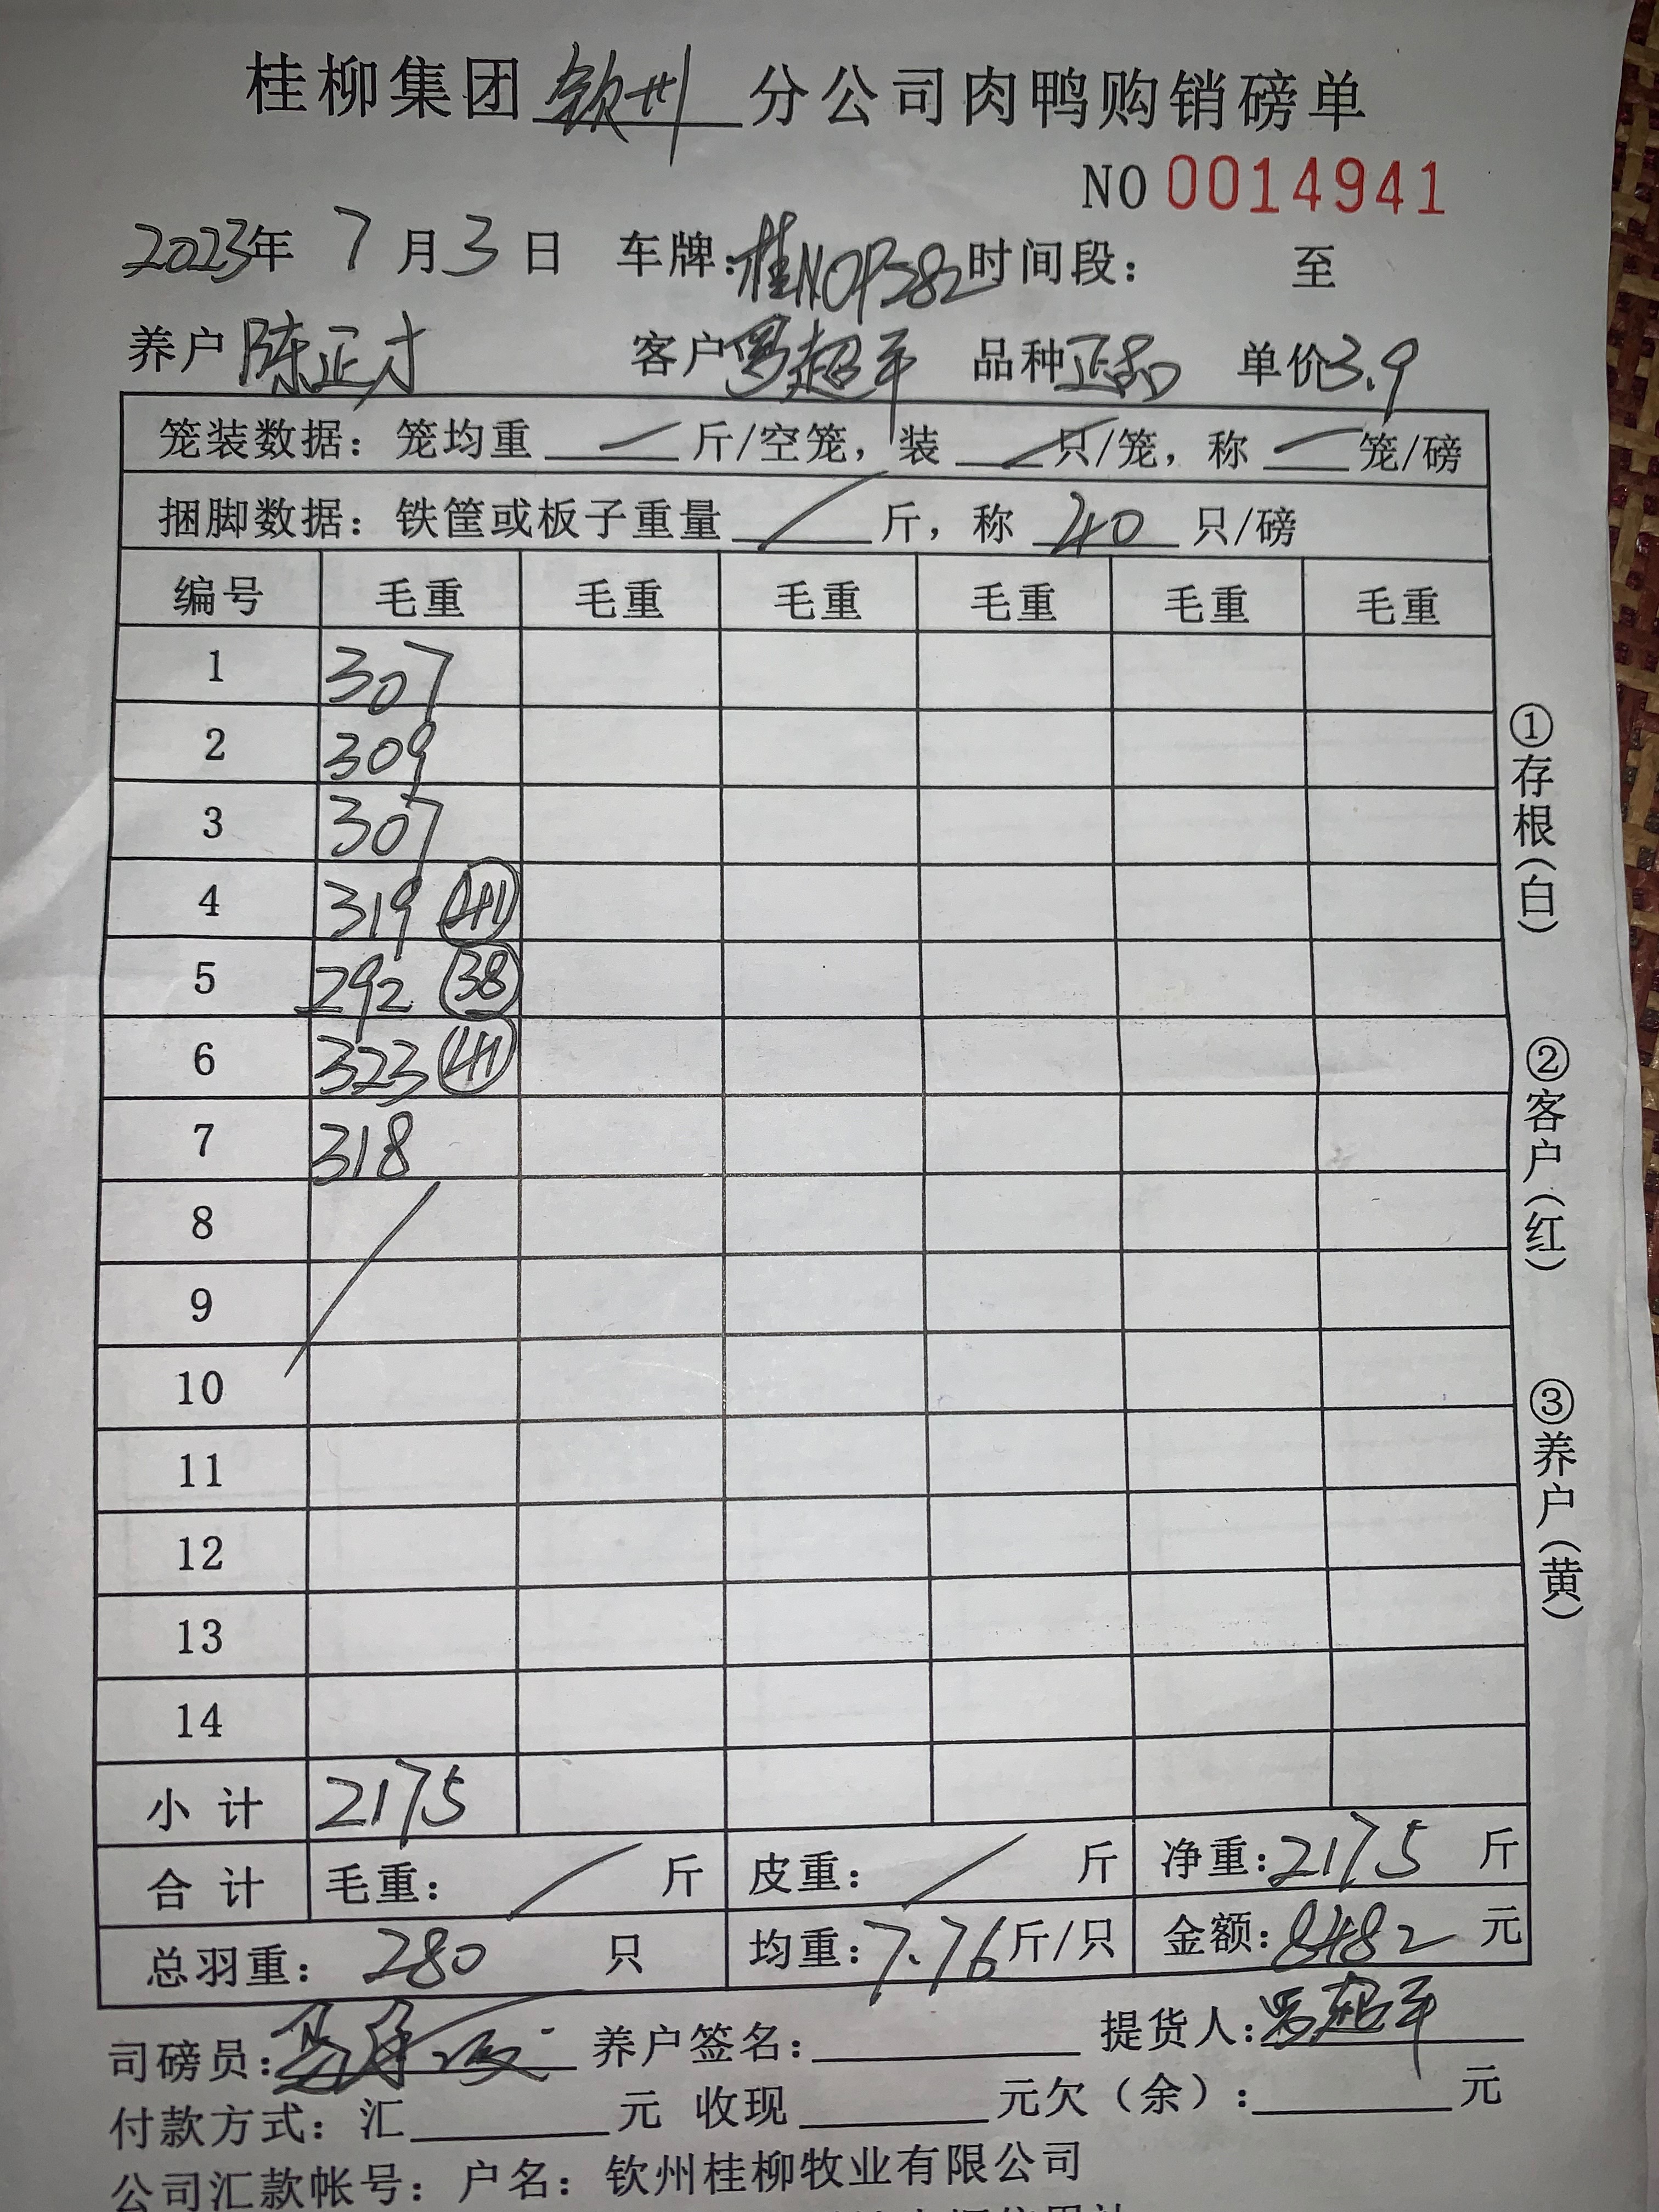 桂柳集团钦州分公司肉鸭购销磅单
NO 0014941
2023年 7月3日 车牌:桂NOP282时间段: 至
养户 陈正才 客户 罗超平 品种 正品 单价3.9
笼装数据: 笼均重 — 斤/空笼, 装 — 只/笼, 称 — 笼/磅
捆脚数据: 铁筐或板子重量 / 斤, 称 40 只/磅
编号 毛重 毛重 毛重 毛重 毛重 毛重
1 307
2 309
3 307
4 319 ㊶
5 292 ㊳
6 323 ㊶
7 318
8 /
9
10
11
12
13
14
小计 2175
合计 毛重: / 斤 皮重: / 斤 净重:2175 斤
总羽重: 280 只 均重:7.76斤/只 金额:8482 元
司磅员: 养户签名: 提货人:罗超平
付款方式: 汇 元 收现 元欠(余): 元
公司汇款帐号: 户名: 钦州桂柳牧业有限公司
①存根(白)
②客户(红)
③养户(黄)